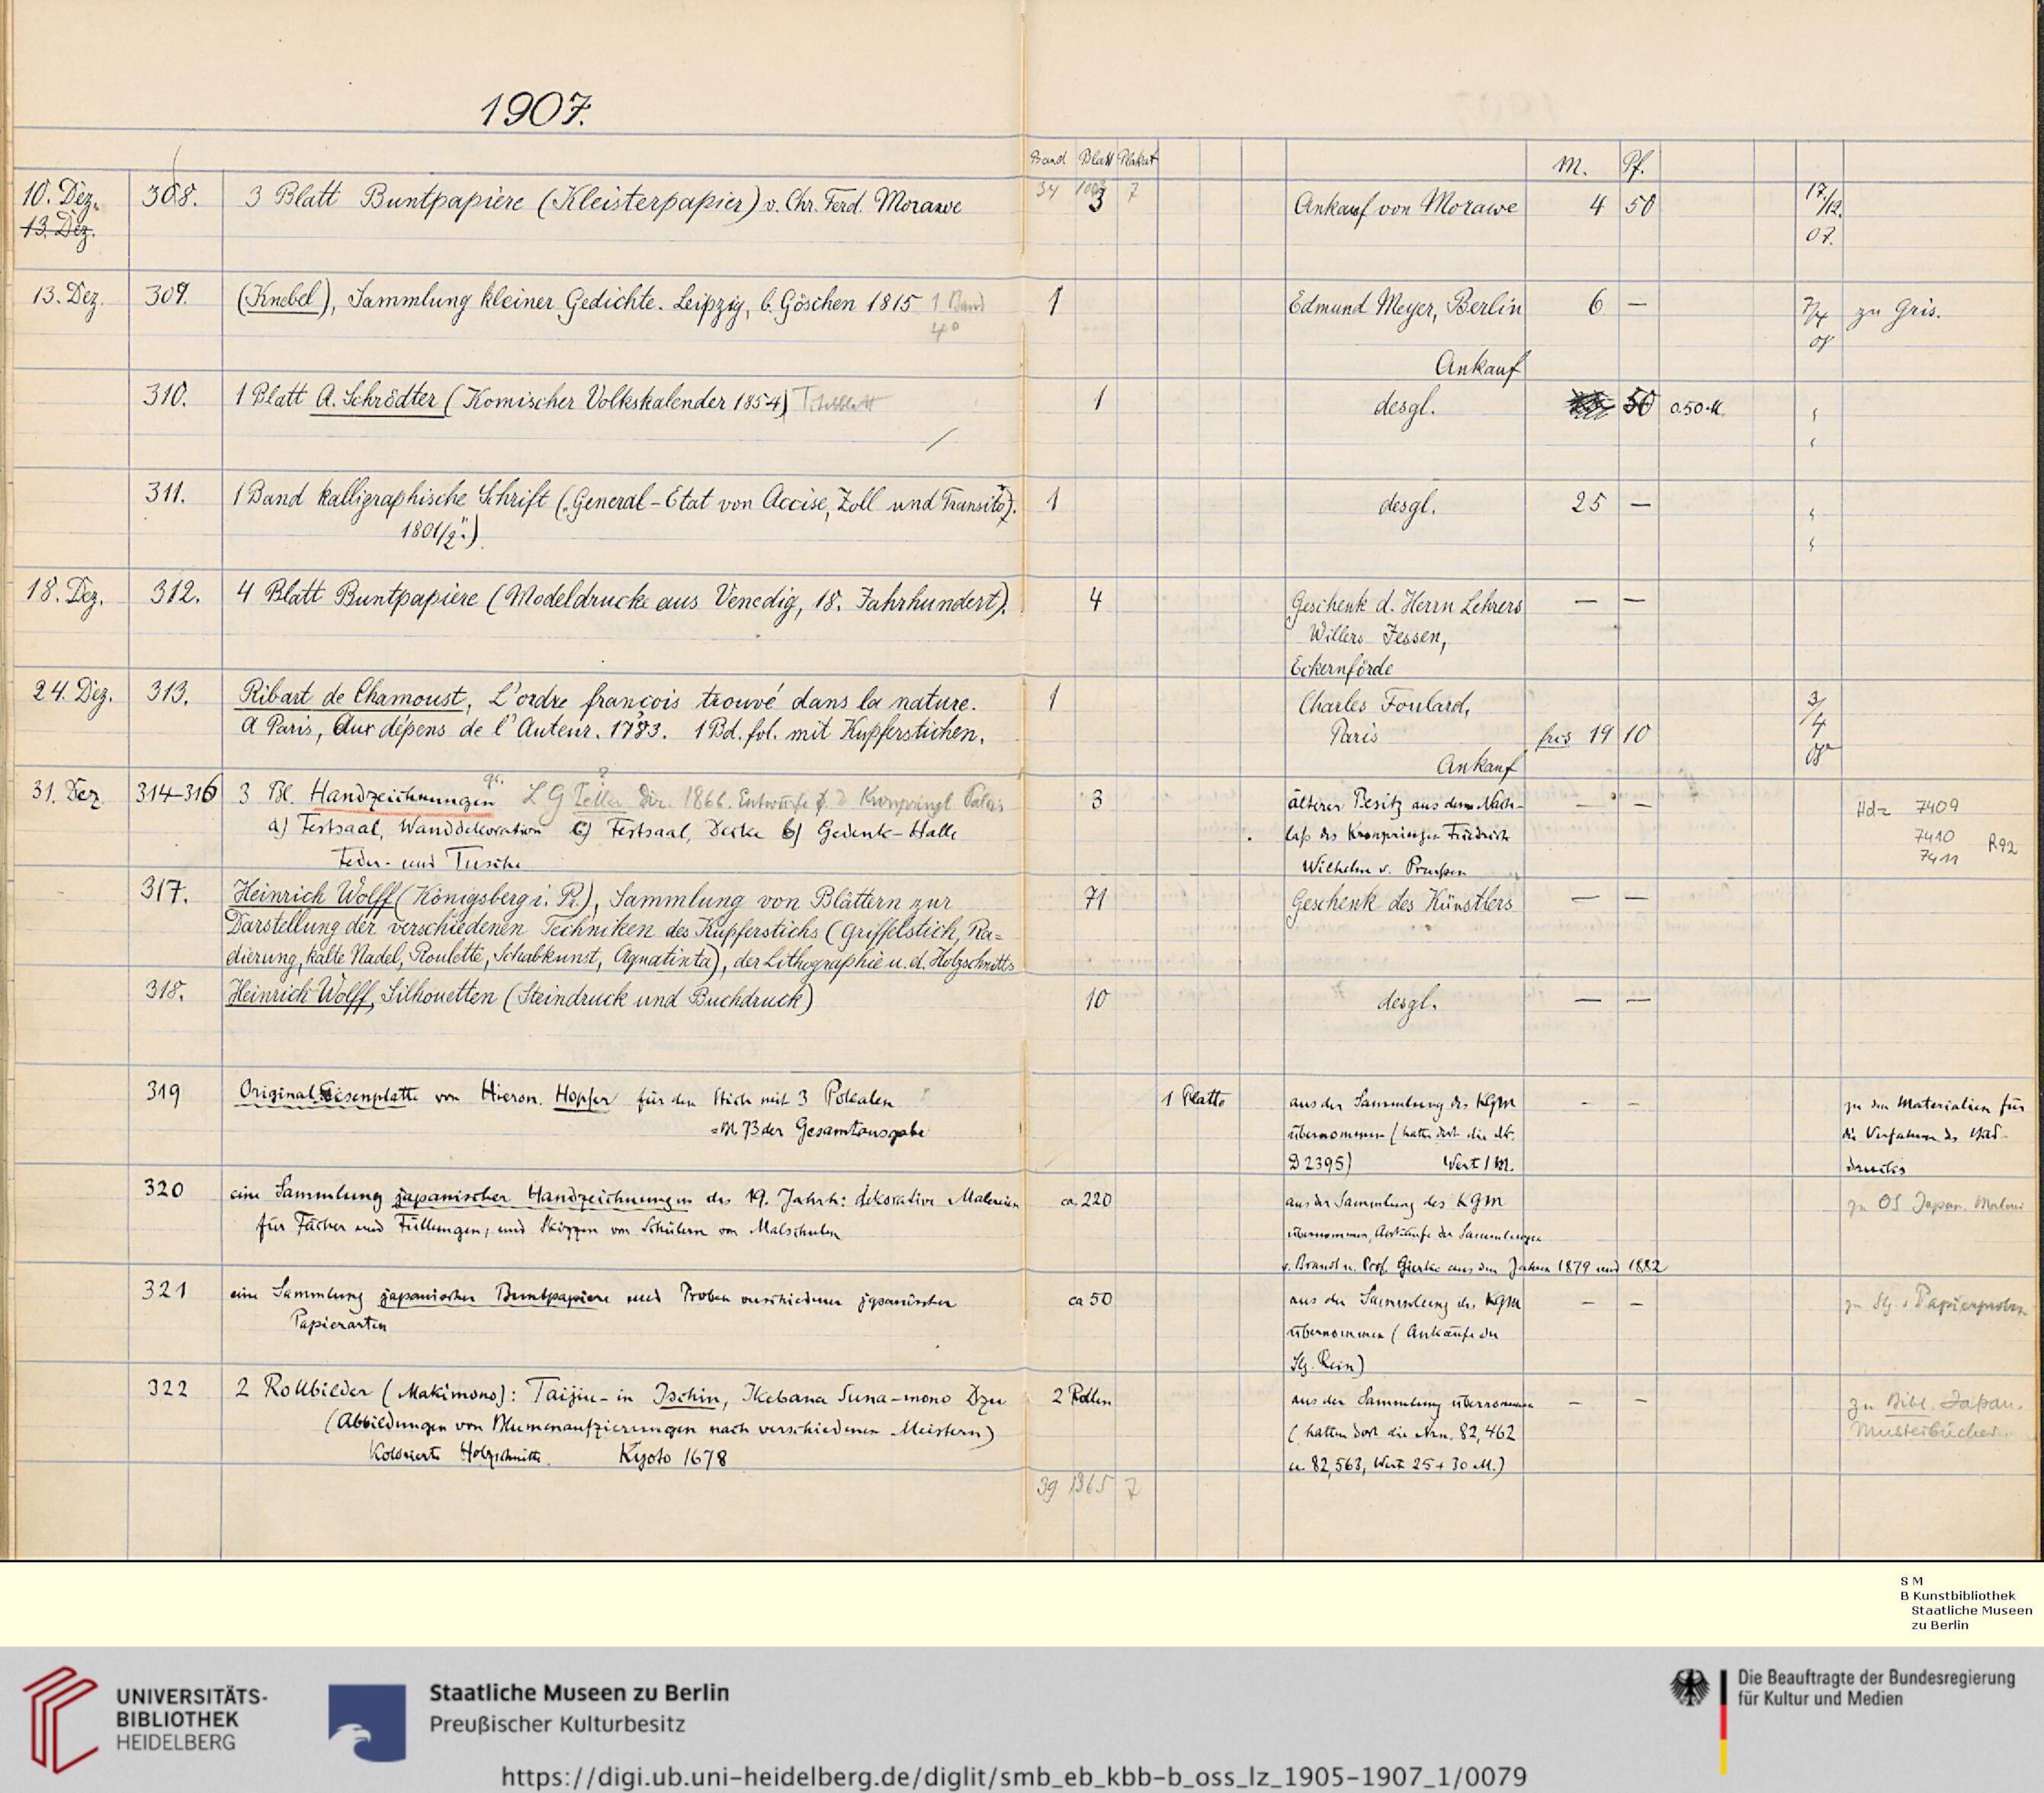 1907.
Band Blatt Plakat M. Pf.
10. Dez. 308. 3 Blatt Buntpapiere (Kleisterpapier) v. Chr. Ferd. Morawe 34 3 7 Ankauf von Morawe 4 50 17./12.
13. Dez. 07.
13. Dez. 309. (Knebel), Sammlung kleiner Gedichte. Leipzig, b. Göschen 1815 1 Band 1 Edmund Meyer, Berlin 6 — 7/4 zu Gris.
4° 08
Ankauf
310. 1 Blatt A. Schrödter (Komischer Volkskalender 1854) Titelblatt 1 desgl. 50 0.50 M.
311. 1 Band kalligraphische Schrift („General-Etat von Accise, Zoll und Transito). 1 desgl. 25 —
1801/2.")
18. Dez. 312. 4 Blatt Buntpapiere (Modeldrucke aus Venedig, 18. Jahrhundert). 4 Geschenk d. Herrn Lehrers — —
Willers Jessen,
Eckernförde
24. Dez. 313. Ribart de Chamoust, L'ordre françois trouvé dans la nature. 1 Charles Foulard, 3/4
a Paris, Aux dépens de l'Auteur. 1783. 1 Bd. fol. mit Kupferstichen. Paris frcs 19 10 08
Ankauf
31. Dez 314–316 3 Bl. Handzeichnungen gr. L G ? Dir. 1866. Entwürfe f. d Kronprinzl. Palais 3 älterer Besitz aus dem Nach- — — Hdz 7409
a) Festsaal, Wanddekoration c) Festsaal, Decke b) Gedenk-Halle laß des Kronprinzen Friedrich 7410 R92
Feder- und Tusche Wilhelm v. Preußen 7411
317. Heinrich Wolff (Königsberg i. Pr.), Sammlung von Blättern zur 71 Geschenk des Künstlers — —
Darstellung der verschiedenen Techniken des Kupferstichs (Griffelstich, Ra=
dierung, kalte Nadel, Roulette, Schabkunst, Aquatinta), der Lithographie u. d. Holzschnitts
318. Heinrich Wolff, Silhouetten (Steindruck und Buchdruck) 10 desgl. — —
319 Original Eisenplatte von Hieron. Hopfer für den Stich mit 3 Pokalen 1 Platte aus der Sammlung des KGM – – zu den Materialien für
73 der Gesamtausgabe übernommen (hatte dort die Nr. die Verfahren des Bild-
D 2395) Wert 1 M. druckes
320 eine Sammlung japanischer Handzeichnungen des 19. Jahrh: dekorative Malereien ca. 220 aus der Sammlung des KGM zu OS Japan. Malerei
für Fächer und Füllungen, und Skizzen von Schülern von Malschulen übernommen, Ankäufe der Sammlungen
v. Brandt u. Prof. Gierke aus den Jahren 1879 und 1882
321 eine Sammlung japanischer Buntpapiere und Proben verschiedener japanischer ca 50 aus der Sammlung des KGM – – zu Slg. v Papierproben
Papierarten übernommen (Ankäufe der
Slg. Rein)
322 2 Rollbilder (Makimono): Taijiu-in Ischin, Ikebana Suna-mono Dzu 2 Rollen aus der Sammlung übernommen – – zu Bibl. Japan.
(Abbildungen von Blumenaufzierungen nach verschiedenen Meistern) (hatten dort die Nrn. 82,462 Musterbücher.
Kolorierte Holzschnitte. Kyoto 1678 u. 82,563, Wert 25 + 30 M.)
39 1365 7
S M
B Kunstbibliothek
Staatliche Museen
zu Berlin
UNIVERSITÄTS-
BIBLIOTHEK
HEIDELBERG
Staatliche Museen zu Berlin
Preußischer Kulturbesitz
Die Beauftragte der Bundesregierung
für Kultur und Medien
https://digi.ub.uni-heidelberg.de/diglit/smb_eb_kbb-b_oss_lz_1905-1907_1/0079